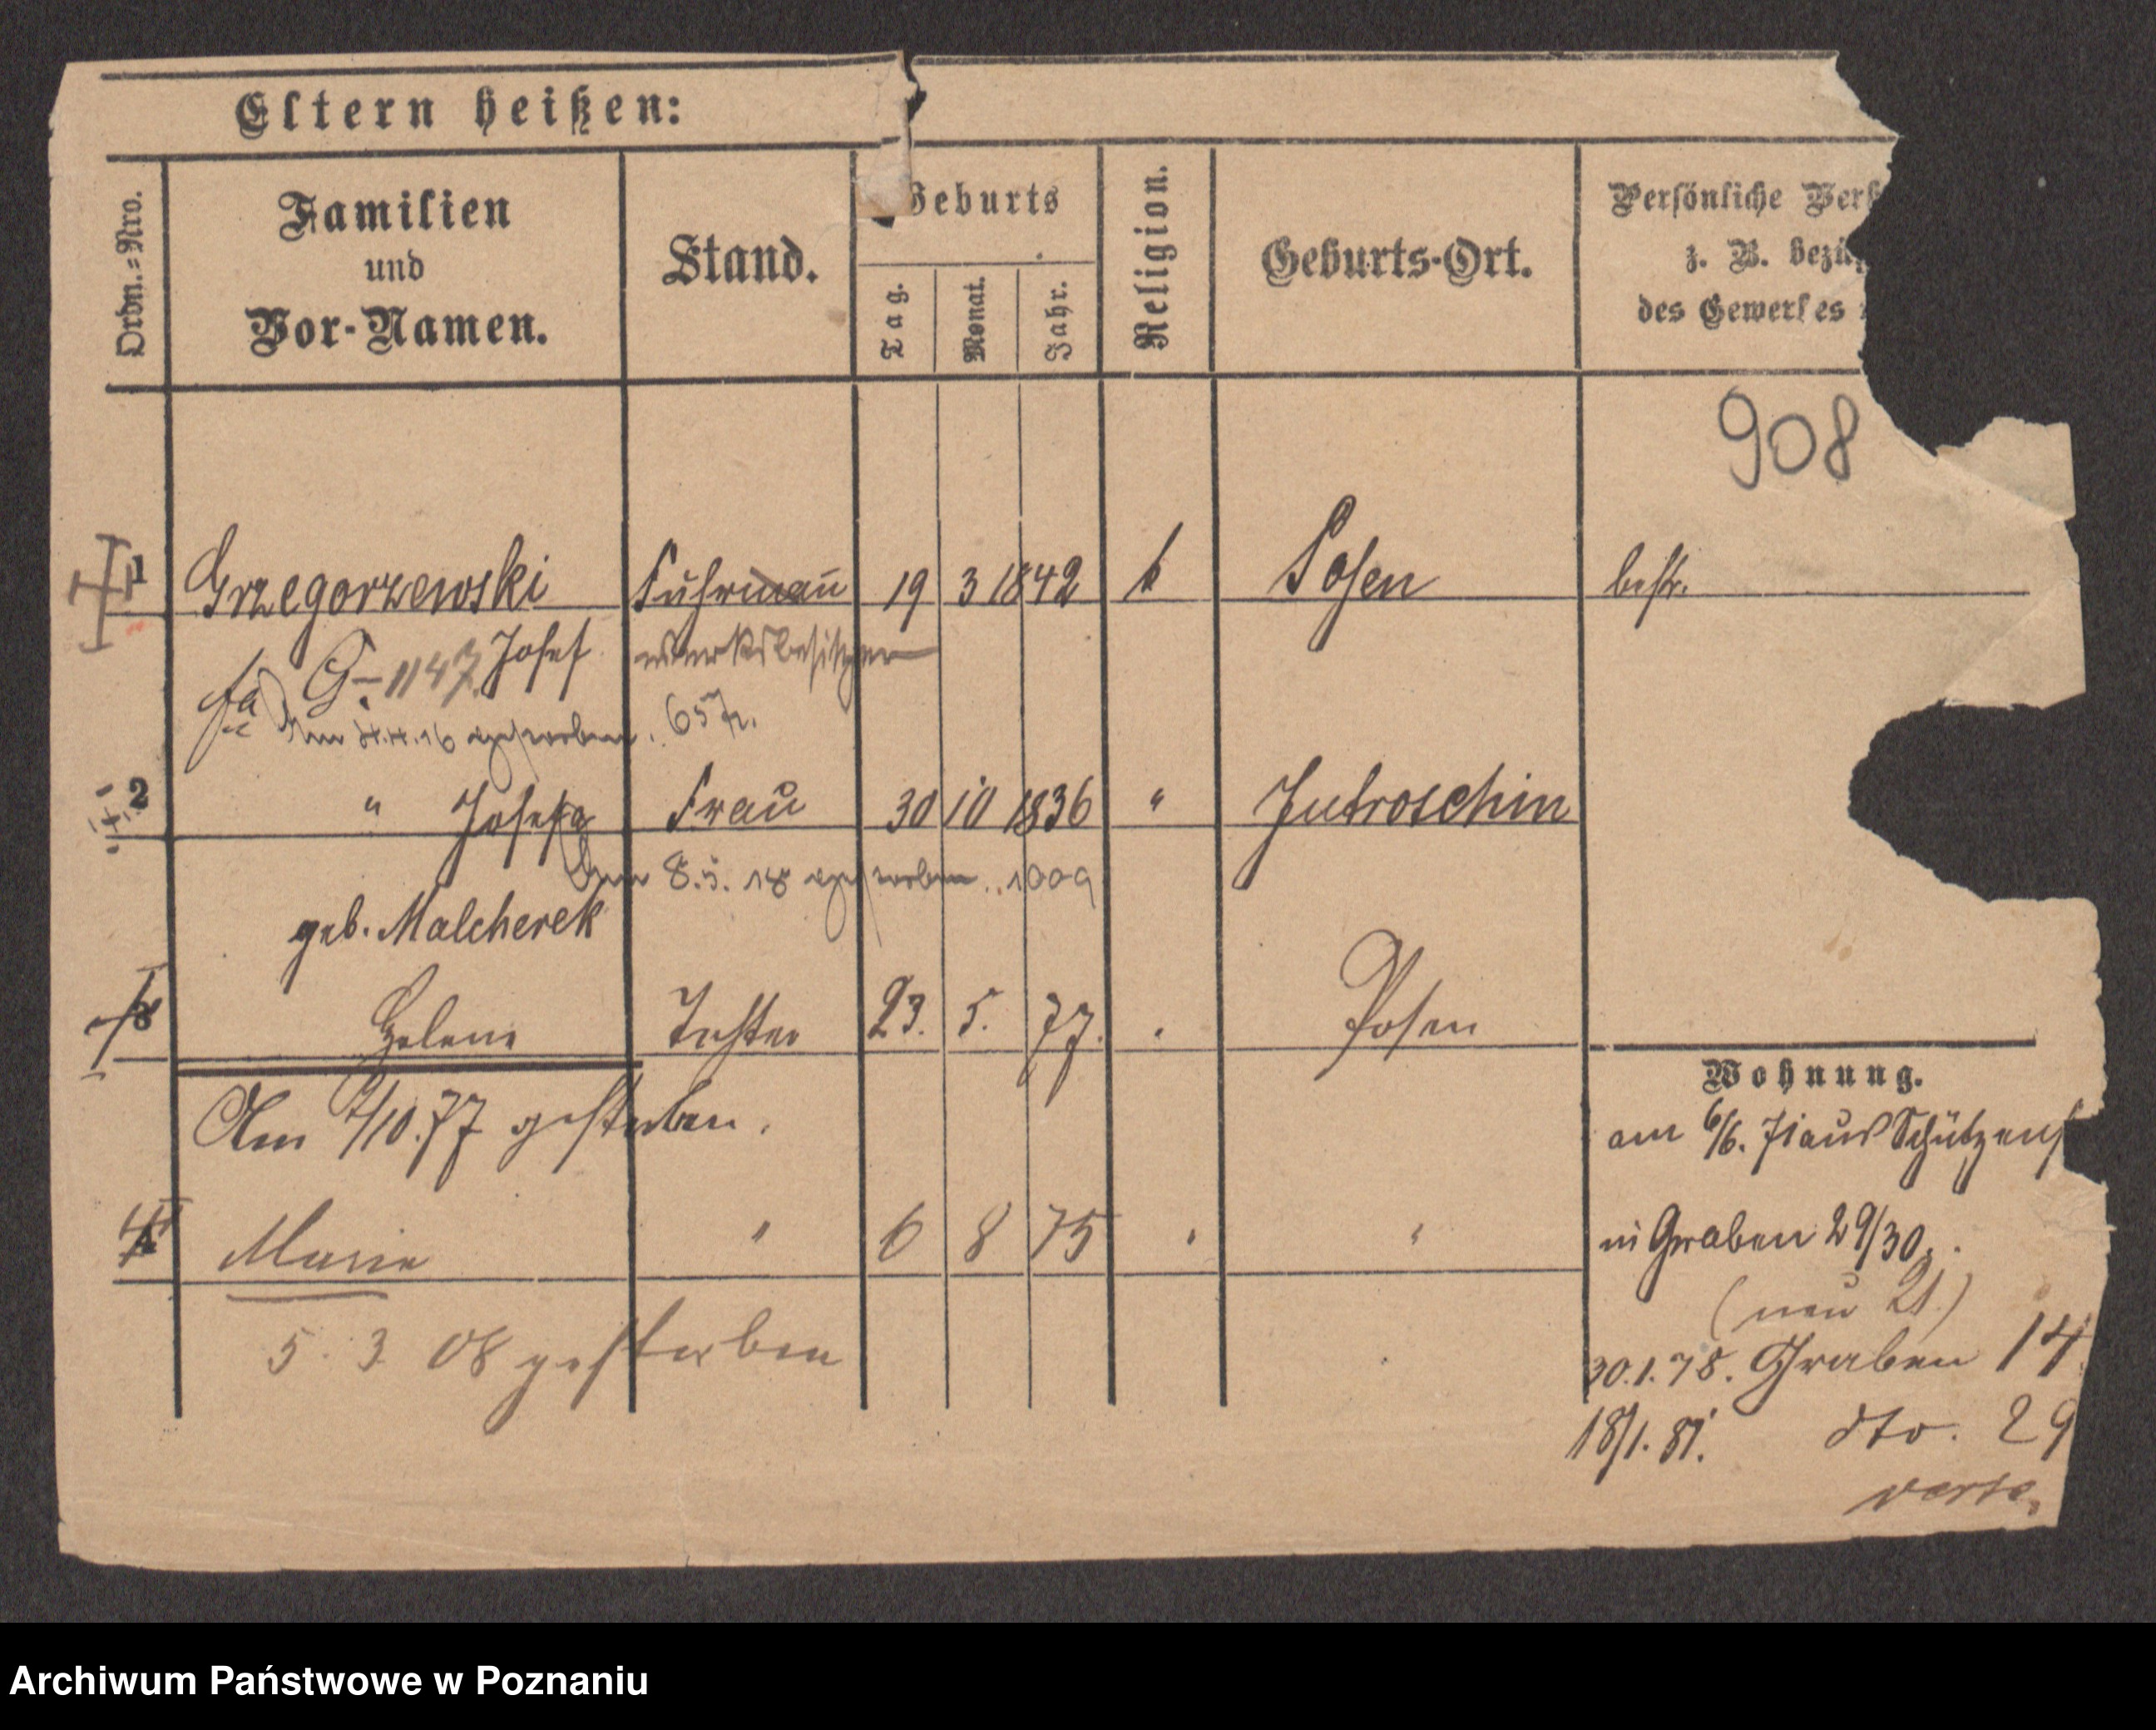 Eltern heißen:
Ordn.=Nro.
Familien
und
Vor-Namen.
Stand.
Geburts
Tag.
Monat.
Jahr.
Religion.
Geburts-Ort.
Persönliche Ver
z. B. bezüg
des Gewerkes
908
1 Grzegorzewski Fuhrmann 19 3 1842 k Posen bestr.
G. 1147. Josef werksbesitzer
gestorben. 657
2 " Josefa Frau 30 10 1836 " Jutroschin
8.5.18 gestorben. 1009
geb. Malcherek
3 Helene Tochter 23. 5. 77. Posen
Am /10.77 gestorben.
4 Marie " 6 8 75 " "
5. 3. 08 gestorben
Wohnung.
am 6/6. 71 aus Schützens
in Graben 29/30.
(neu 21.)
30.1.78. Graben 14.
18/1.81. dto. 29
verte.
Archiwum Państwowe w Poznaniu